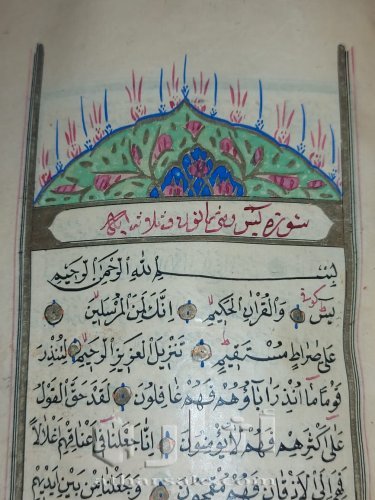 سورة يس وهي ثمانون وثلاث آيه
بسم الله الرحمن الرحيم
يس والقرآن الحكيم انك لمن المرسلين
على صراط مستقيم تنزيل العزيز الرحيم لتنذر
قوما ما انذر اباؤهم فهم غافلون لقد حق القول
على اكثرهم فهم لا يؤمنون انا جعلنا في اعناقهم اغلالا
فهي الى الاذقان فهم مقمحون وجعلنا من بين ايديهم